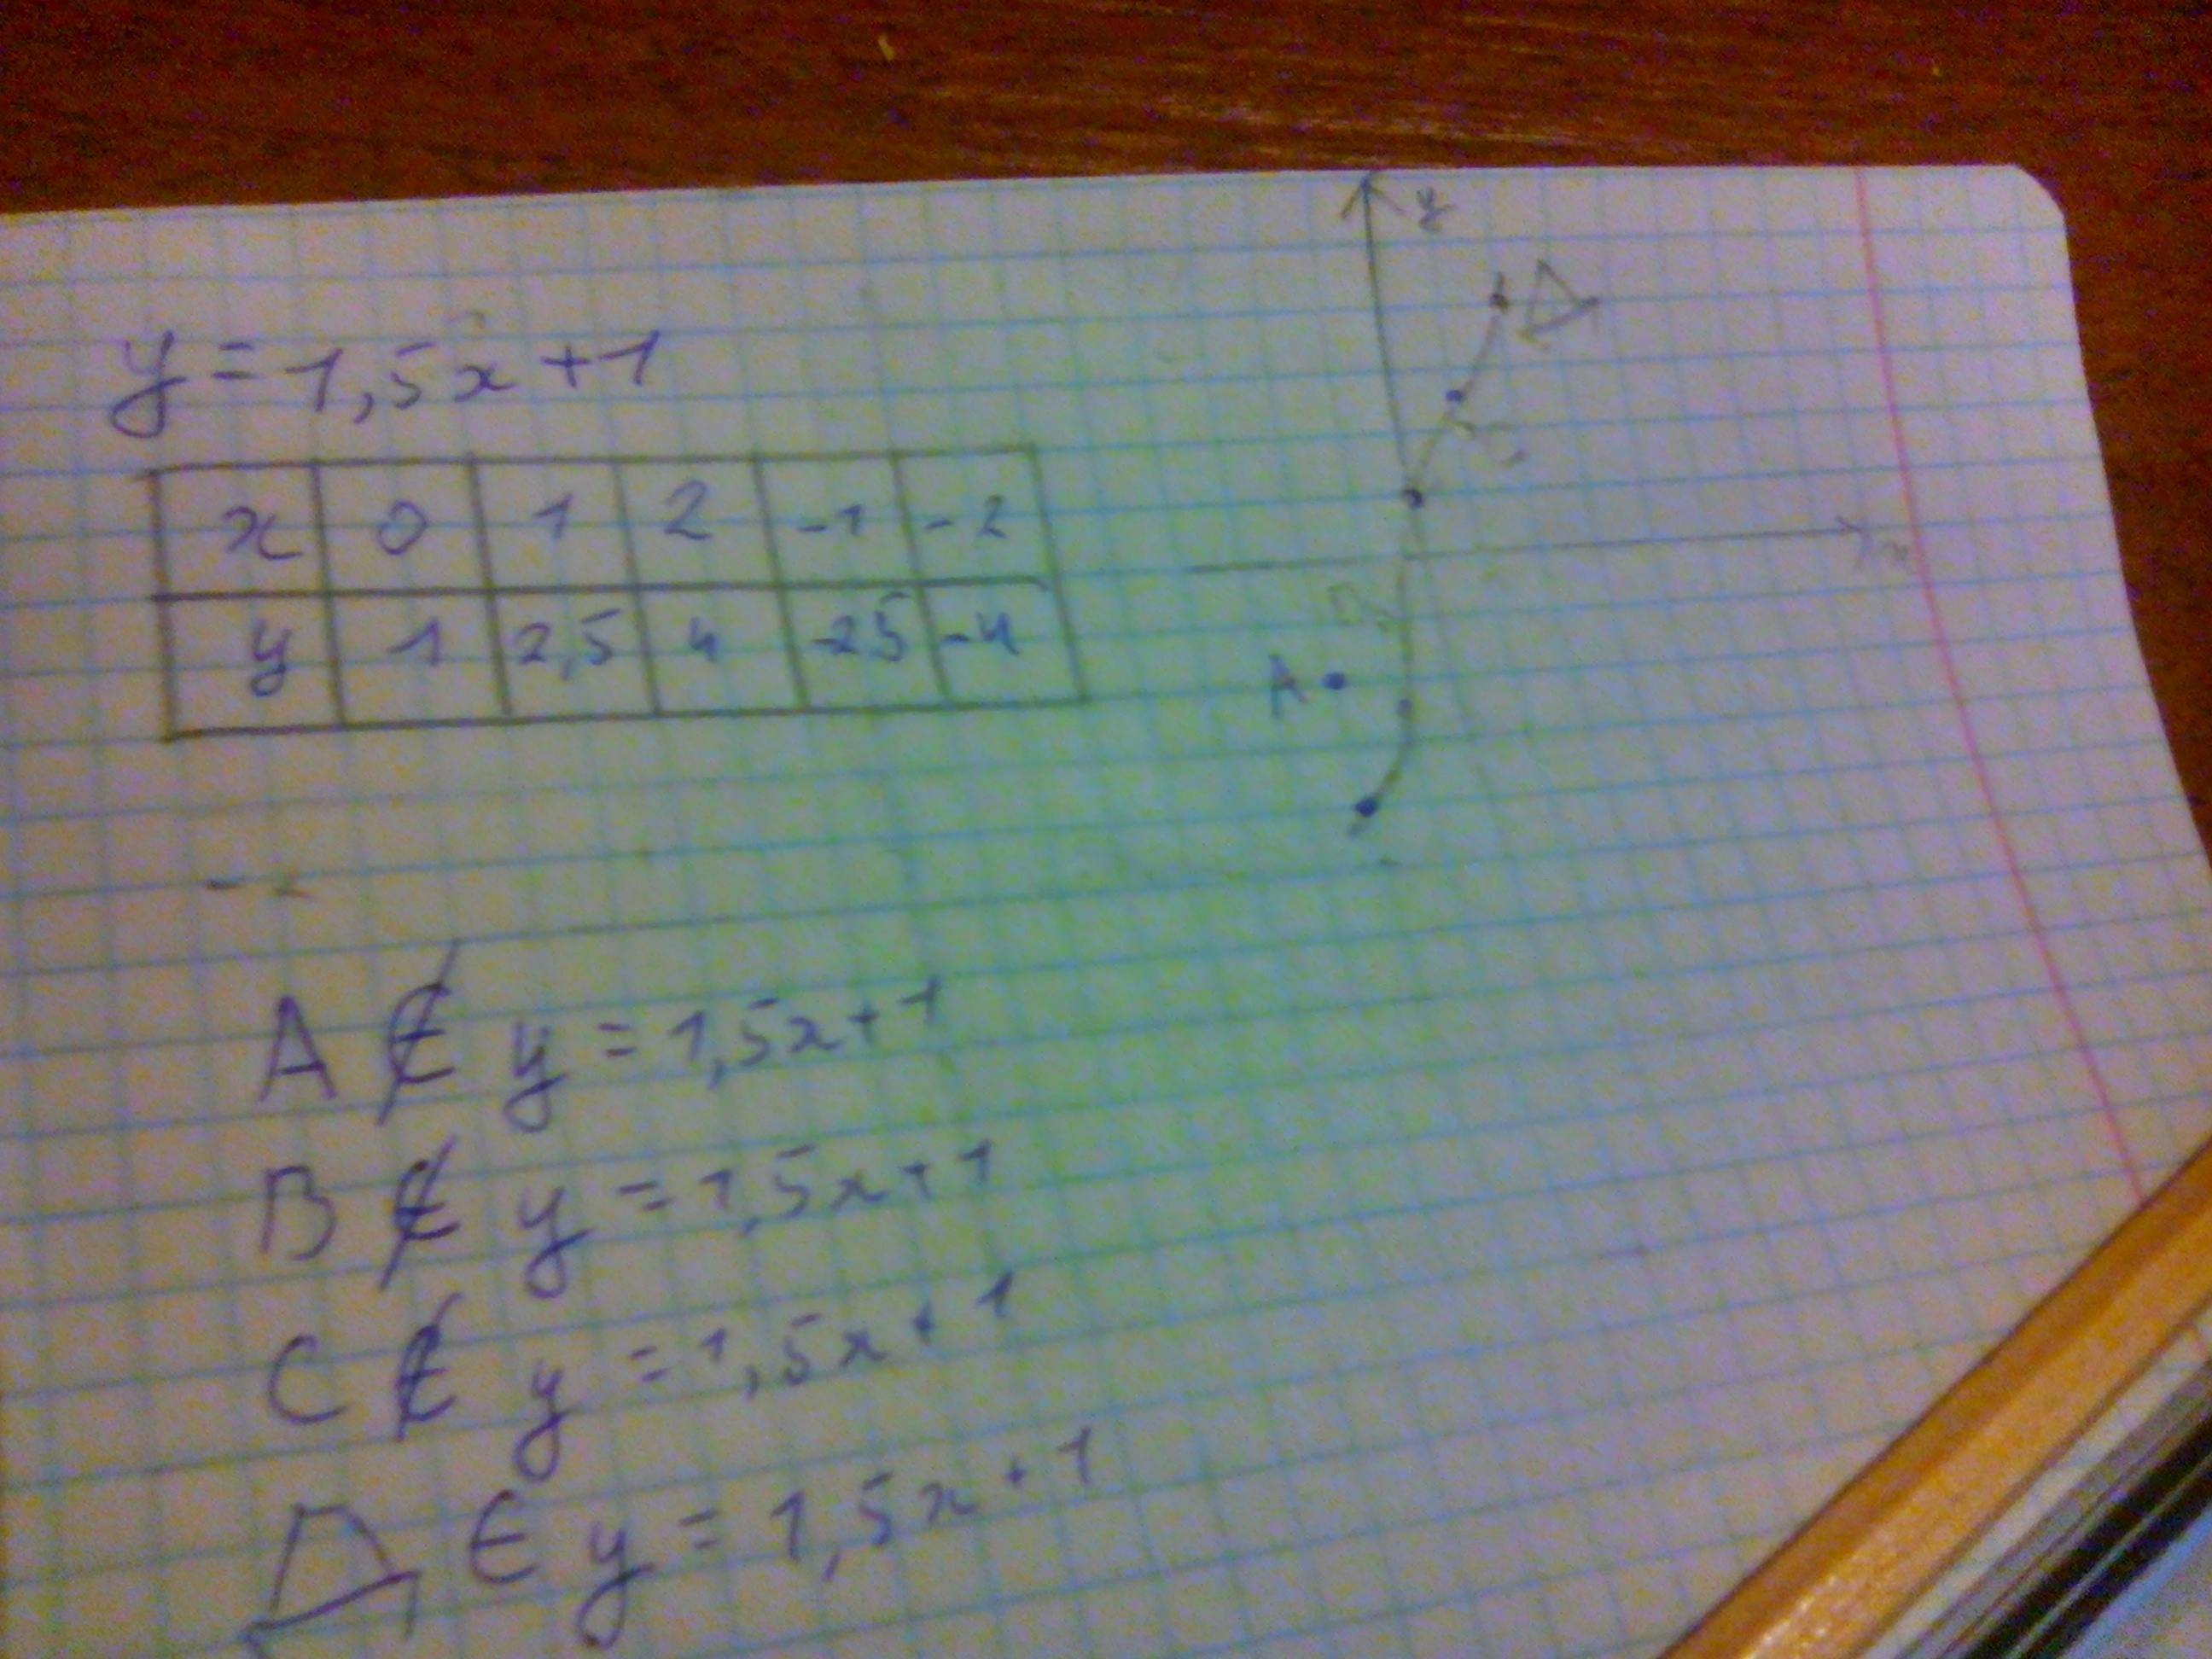 y = 1,5x + 1
x 0 1 2 -1 -2
y 1 2,5 4 -2,5 -4
y
x
Д
A
A ∉ y = 1,5x + 1
B ∉ y = 1,5x + 1
C ∉ y = 1,5x + 1
Д ∈ y = 1,5x + 1